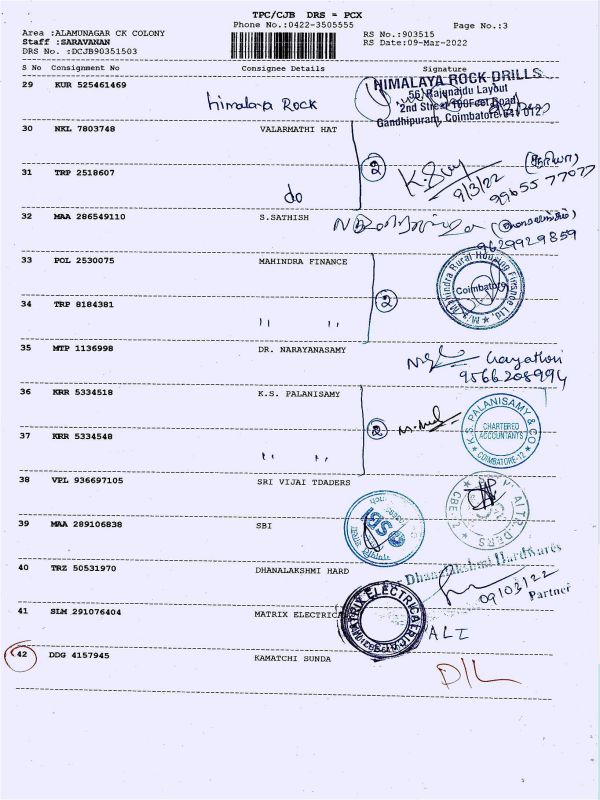 TPC/CJB DRS = PCX
Phone No.:0422-3505555 Page No.:3
Area :ALAMUNAGAR CK COLONY RS No.:903515
Staff :SARAVANAN RS Date:09-Mar-2022
DRS No. :DCJB90351503
S No Consignment No Consignee Details Signature
29 KUR 525461469 himalaya Rock
HIMALAYA ROCK DRILLS
56, Rajunaidu Layout
2nd Street 100Feet Road
Gandhipuram, Coimbatore-641 012
30 NKL 7803748 VALARMATHI HAT
31 TRP 2518607 do
2
9/3/22
99655 77077
32 MAA 286549110 S.SATHISH
9629929859
33 POL 2530075 MAHINDRA FINANCE
Mahindra Rural Housing Finance Ltd.
Coimbatore
34 TRP 8184381 " "
2
35 MTP 1136998 DR. NARAYANASAMY
Gayathri
9566208994
36 KRR 5334518 K.S. PALANISAMY
K.S. PALANISAMY & CO
CHARTERED
ACCOUNTANTS
COIMBATORE-12
37 KRR 5334548 " "
2
38 VPL 936697105 SRI VIJAI TDADERS
CBE-2
39 MAA 289106838 SBI
SBI
40 TRZ 50531970 DHANALAKSHMI HARD
Dhanalakshmi Hardwares
09/03/22
Partner
41 SLM 291076404 MATRIX ELECTRICA
MATRIX ELECTRICAL
ALI
42 DDG 4157945 KAMATCHI SUNDA
D/L